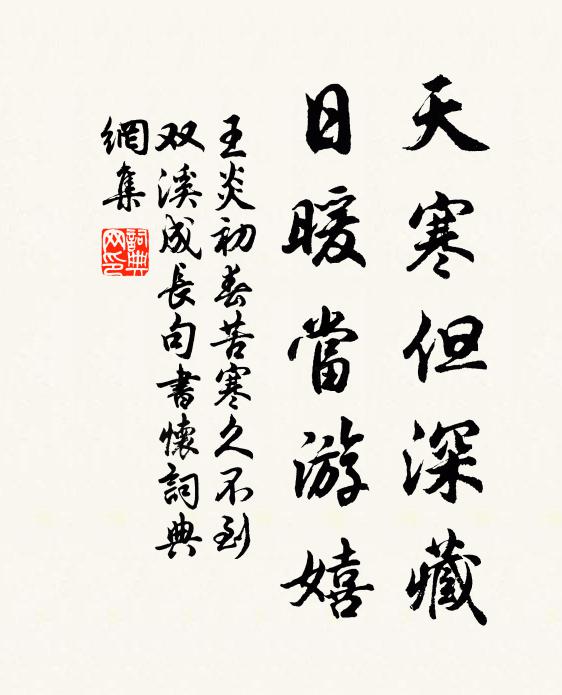 天寒但深藏
日暖當游嬉
王炎初春苦寒久不到
双溪成長句書懷詞典
網集
詞典網印